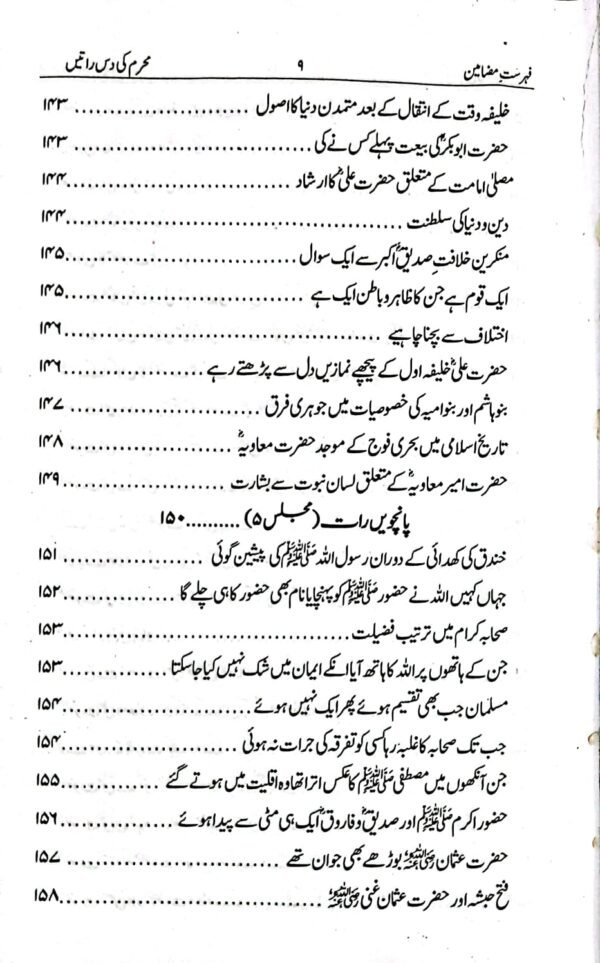 فہرست مضامین ۹ محرم کی دس راتیں
خلیفہ وقت کے انتقال کے بعد متمدن دنیا کا اصول ........................ ۱۴۳
حضرت ابوبکرؓ کی بیعت پہلے کس نے کی ........................ ۱۴۳
مصلیٰ امامت کے متعلق حضرت علیؓ کا ارشاد ........................ ۱۴۴
دین و دنیا کی سلطنت ........................ ۱۴۴
منکرین خلافتِ صدیق اکبرؓ سے ایک سوال ........................ ۱۴۵
ایک قوم ہے جن کا ظاہر و باطن ایک ہے ........................ ۱۴۵
اختلاف سے بچنا چاہیے ........................ ۱۴۶
حضرت علیؓ خلیفہ اول کے پیچھے نمازیں دل سے پڑھتے رہے ........................ ۱۴۶
بنو ہاشم اور بنو امیہ کی خصوصیات میں جوہری فرق ........................ ۱۴۷
تاریخ اسلامی میں بحری فوج کے موجد حضرت معاویہؓ ........................ ۱۴۸
حضرت امیر معاویہؓ کے متعلق لسان نبوت سے بشارت ........................ ۱۴۹
پانچویں رات (مجلس ۵) .......... ۱۵۰
خندق کی کھدائی کے دوران رسول اللہ ﷺ کی پیشین گوئی ........................ ۱۵۱
جہاں کہیں اللہ نے حضور ﷺ کو پہنچایا نام بھی حضور کا ہی چلے گا ........................ ۱۵۲
صحابہ کرام میں ترتیب فضیلت ........................ ۱۵۳
جن کے ہاتھوں پر اللہ کا ہاتھ آیا انکے ایمان میں شک نہیں کیا جا سکتا ........................ ۱۵۳
مسلمان جب بھی تقسیم ہوئے پھر ایک نہیں ہوئے ........................ ۱۵۴
جب تک صحابہ کا غلبہ رہا کسی کو تفرقہ کی جرات نہ ہوئی ........................ ۱۵۴
جن آنکھوں میں مصطفیٰ ﷺ کا عکس اترا تھا وہ اقلیت میں ہوتے گئے ........................ ۱۵۵
حضور اکرم ﷺ اور صدیقؓ و فاروقؓ ایک ہی مٹی سے پیدا ہوئے ........................ ۱۵۶
حضرت عثمان ﷺ بوڑھے بھی جوان تھے ........................ ۱۵۷
فتح حبشہ اور حضرت عثمان غنی ﷺ ........................ ۱۵۸